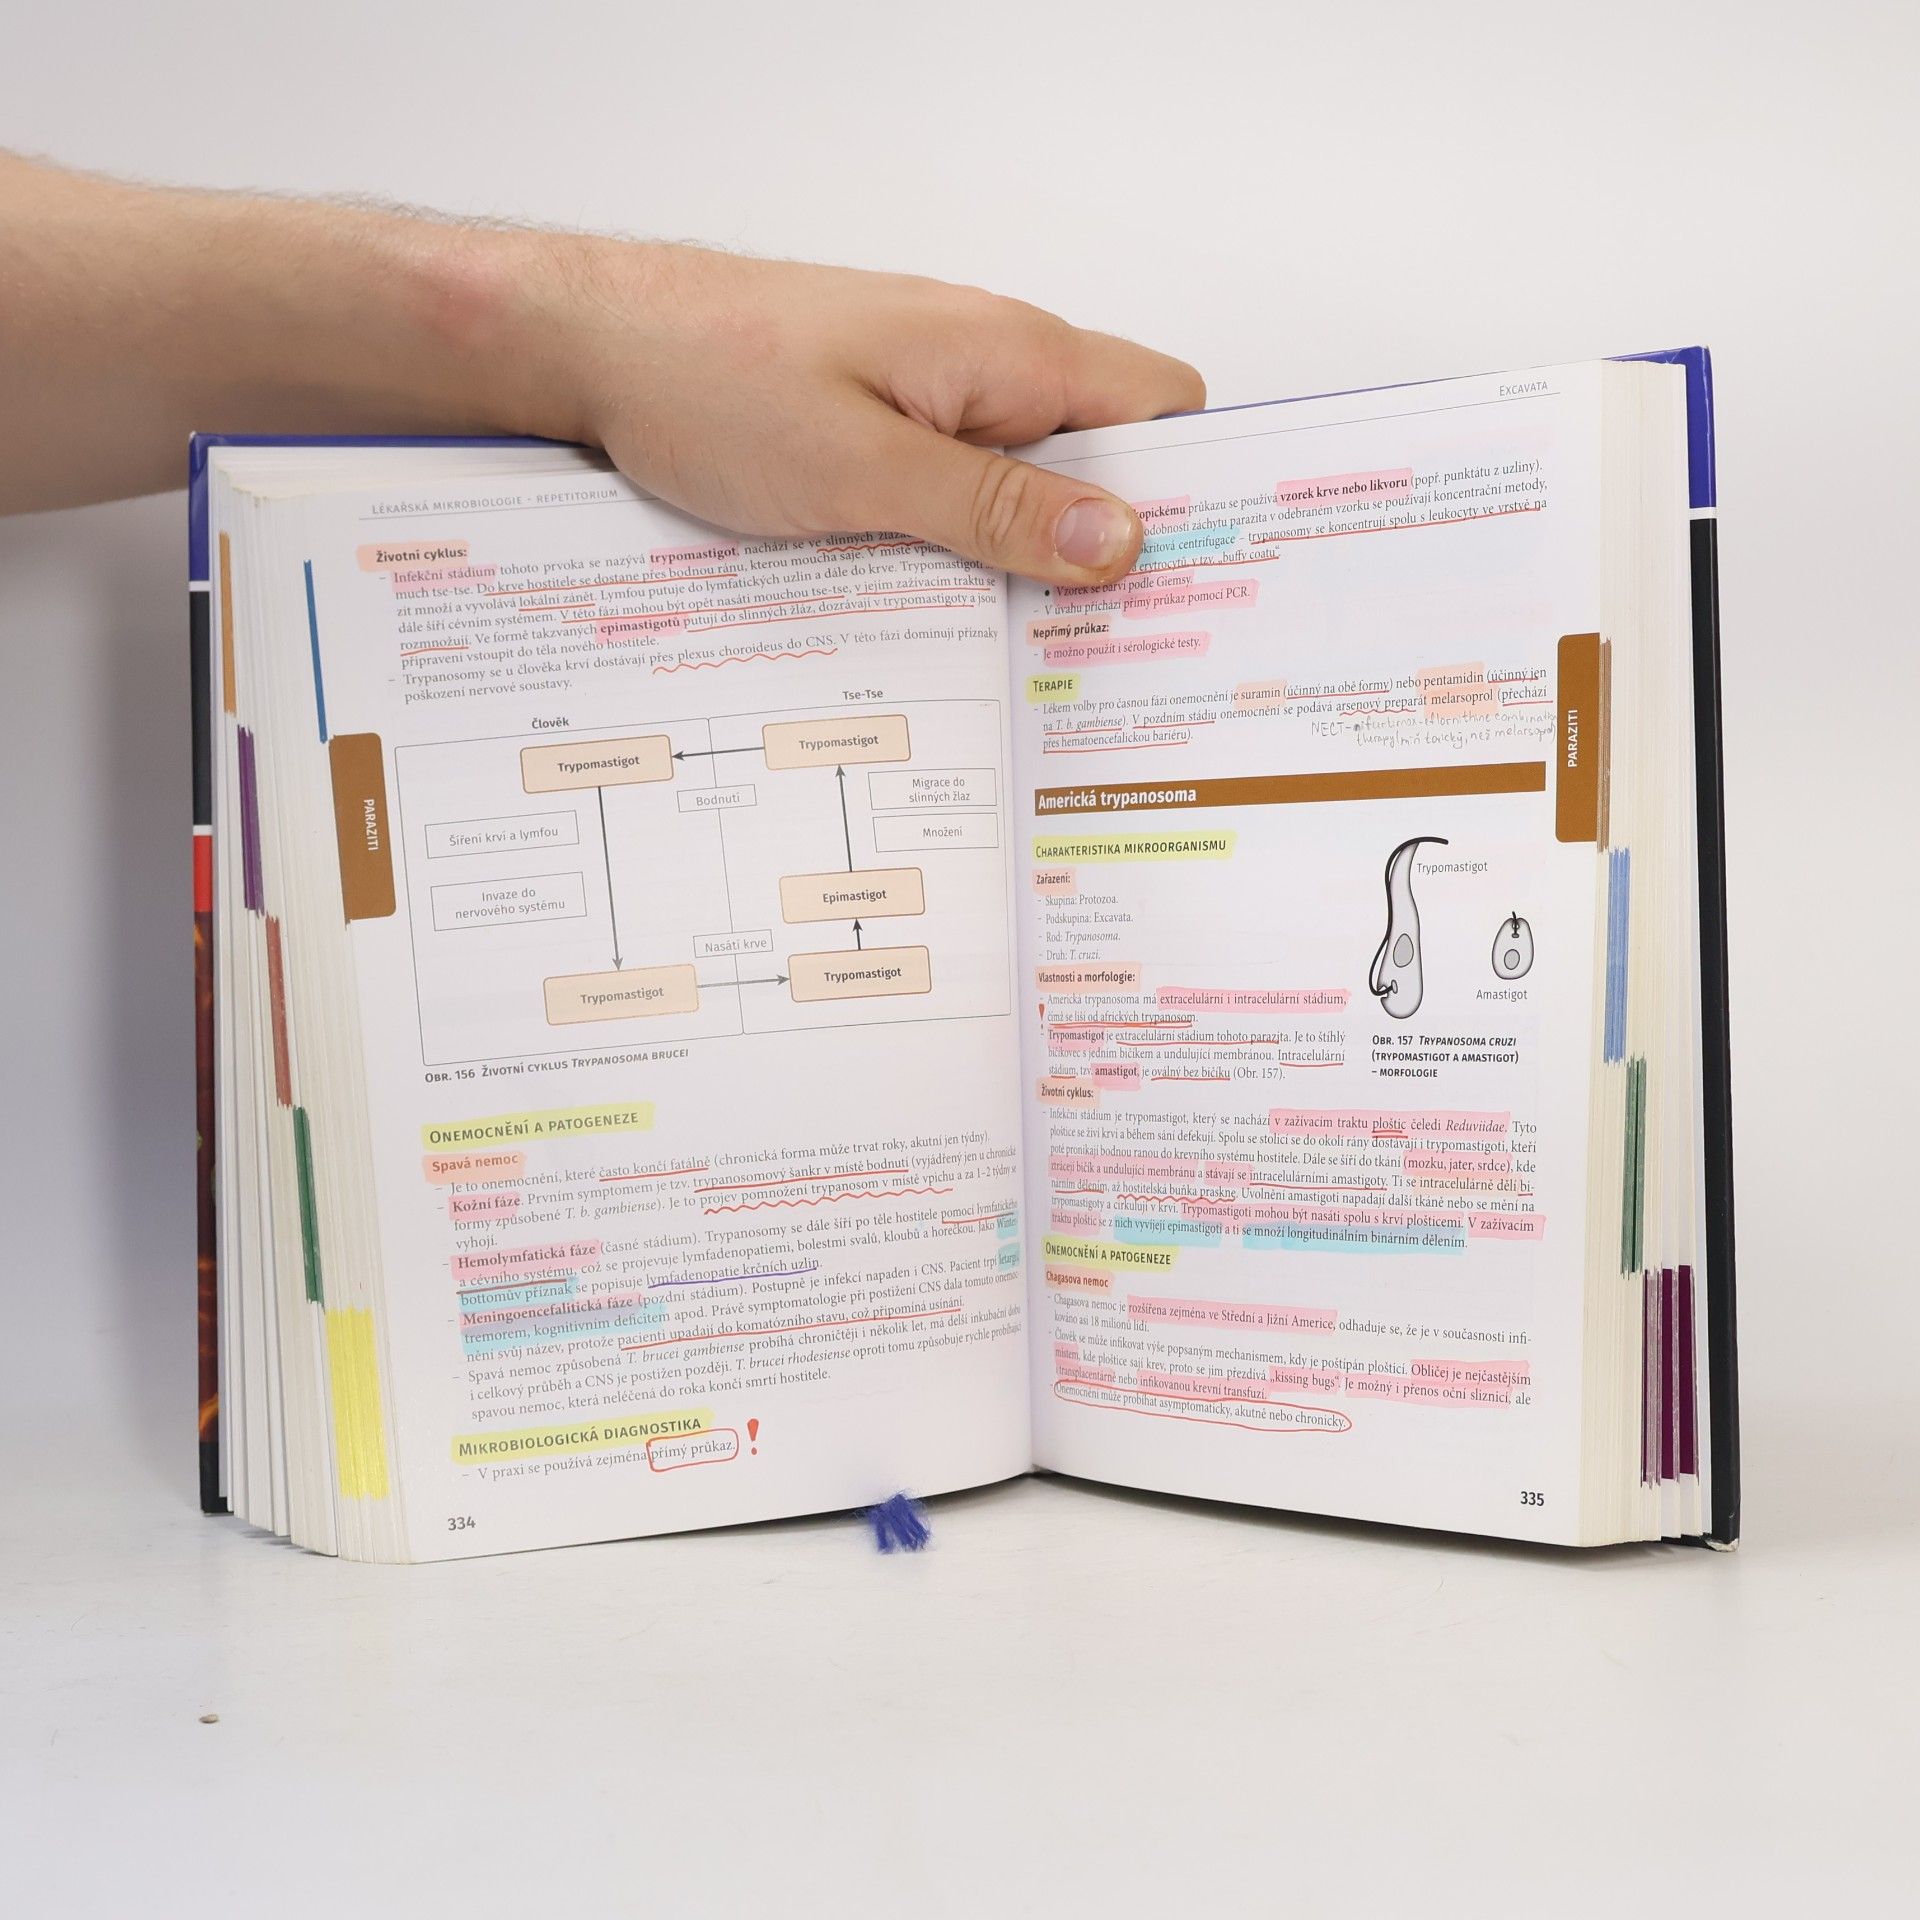 LÉKAŘSKÁ MIKROBIOLOGIE - REPETITORIUM
Životní cyklus:
– Infekční stádium tohoto prvoka se nazývá trypomastigot, nachází se ve slinných
much tse-tse. Do krve hostitele se dostane přes bodnou ránu, kterou moucha saje. V místě
zít množí a vyvolává lokální zánět. Lymfou putuje do lymfatických uzlin a dále do krve.
dále šíří cévním systémem. V této fázi mohou být opět nasáti mouchou tse-tse, v jejím zažívacím traktu se
rozmnožují. Ve formě takzvaných epimastigotů putují do slinných žláz, dozrávají v trypomastigoty a jsou
připravení vstoupit do těla nového hostitele.
– Trypanosomy se u člověka krví dostávají přes plexus choroideus do CNS. V této fázi dominují příznaky
poškození nervové soustavy.
Člověk
Tse-Tse
Trypomastigot
Trypomastigot
Bodnutí
Migrace do
slinných žlaz
Šíření krví a lymfou
Množení
Invaze do
nervového systému
Epimastigot
Nasátí krve
Trypomastigot
Trypomastigot
OBR. 156 ŽIVOTNÍ CYKLUS TRYPANOSOMA BRUCEI
ONEMOCNĚNÍ A PATOGENEZE
Spavá nemoc
– Je to onemocnění, které často končí fatálně (chronická forma může trvat roky, akutní jen týdny).
– Kožní fáze. Prvním symptomem je tzv. trypanosomový šankr v místě bodnutí (vyjádřený jen u chronické
formy způsobené T. b. gambiense). Je to projev pomnožení trypanosom v místě vpichu a za 1–2 týdny se
vyhojí.
– Hemolymfatická fáze (časné stádium). Trypanosomy se dále šíří po těle hostitele pomocí lymfatického
a cévního systému, což se projevuje lymfadenopatiemi, bolestmi svalů, kloubů a horečkou. Jako
bottomův příznak se popisuje lymfadenopatie krčních uzlin.
– Meningoencefalitická fáze (pozdní stádium). Postupně je infekcí napaden i CNS. Pacient trpí
tremorem, kognitivním deficitem apod. Právě symptomatologie při postižení CNS dala tomuto onemoc-
nění svůj název, protože pacienti upadají do komatózního stavu, což připomíná usínání.
– Spavá nemoc způsobená T. brucei gambiense probíhá chroničtěji i několik let, má delší inkubační dobu
i celkový průběh a CNS je postižen později. T. brucei rhodesiense oproti tomu způsobuje rychle probíhající
spavou nemoc, která neléčená do roka končí smrtí hostitele.
MIKROBIOLOGICKÁ DIAGNOSTIKA
– V praxi se používá zejména přímý průkaz. !
334
PARAZITI
EXCAVATA
kopickému průkazu se používá vzorek krve nebo likvoru (popř. punktátu z uzliny).
odobnosti záchytu parazita v odebraném vzorku se používají koncentrační metody,
kritová centrifugace – trypanosomy se koncentrují spolu s leukocyty ve vrstvě na
erytrocytů, v tzv. „buffy coatu“.
• Vzorek se barví podle Giemsy.
– V úvahu přichází přímý průkaz pomocí PCR.
Nepřímý průkaz:
– Je možno použít i sérologické testy.
TERAPIE
– Lékem volby pro časnou fázi onemocnění je suramin (účinný na obě formy) nebo pentamidin (účinný jen
na T. b. gambiense). V pozdním stádiu onemocnění se podává arsenový preparát melarsoprol (přechází
přes hematoencefalickou bariéru).
NECT - nifurtimox-eflornithine combination
therapy (míň toxický, než melarsoprol)
Americká trypanosoma
CHARAKTERISTIKA MIKROORGANISMU
Zařazení:
– Skupina: Protozoa.
– Podskupina: Excavata.
– Rod: Trypanosoma.
– Druh: T. cruzi.
Vlastnosti a morfologie:
– Americká trypanosoma má extracelulární i intracelulární stádium,
čímž se liší od afrických trypanosom.
– Trypomastigot je extracelulární stádium tohoto parazita. Je to štíhlý
bičíkovec s jedním bičíkem a undulující membránou. Intracelulární
stádium, tzv. amastigot, je oválný bez bičíku (Obr. 157).
Trypomastigot
Amastigot
OBR. 157 TRYPANOSOMA CRUZI
(TRYPOMASTIGOT A AMASTIGOT)
– MORFOLOGIE
Životní cyklus:
– Infekční stádium je trypomastigot, který se nachází v zažívacím traktu ploštic čeledi Reduviidae. Tyto
ploštice se živí krví a během sání defekují. Spolu se stolicí se do okolí rány dostávají i trypomastigoti, kteří
poté pronikají bodnou ranou do krevního systému hostitele. Dále se šíří do tkání (mozku, jater, srdce), kde
ztrácejí bičík a undulující membránu a stávají se intracelulárními amastigoty. Ti se intracelulárně dělí bi-
nárním dělením, až hostitelská buňka praskne. Uvolnění amastigoti napadají další tkáně nebo se mění na
trypomastigoty a cirkulují v krvi. Trypomastigoti mohou být nasáti spolu s krví plošticemi. V zažívacím
traktu ploštic se z nich vyvíjejí epimastigoti a ti se množí longitudinálním binárním dělením.
ONEMOCNĚNÍ A PATOGENEZE
Chagasova nemoc
– Chagasova nemoc je rozšířena zejména ve Střední a Jižní Americe, odhaduje se, že je v současnosti infi-
kováno asi 18 milionů lidí.
– Člověk se může infikovat výše popsaným mechanismem, kdy je poštípán plošticí. Obličej je nejčastějším
místem, kde ploštice sají krev, proto se jim přezdívá „kissing bugs“. Je možný i přenos oční sliznicí, ale
i transplacentárně nebo infikovanou krevní transfuzí.
Onemocnění může probíhat asymptomaticky, akutně nebo chronicky.
335
PARAZITI